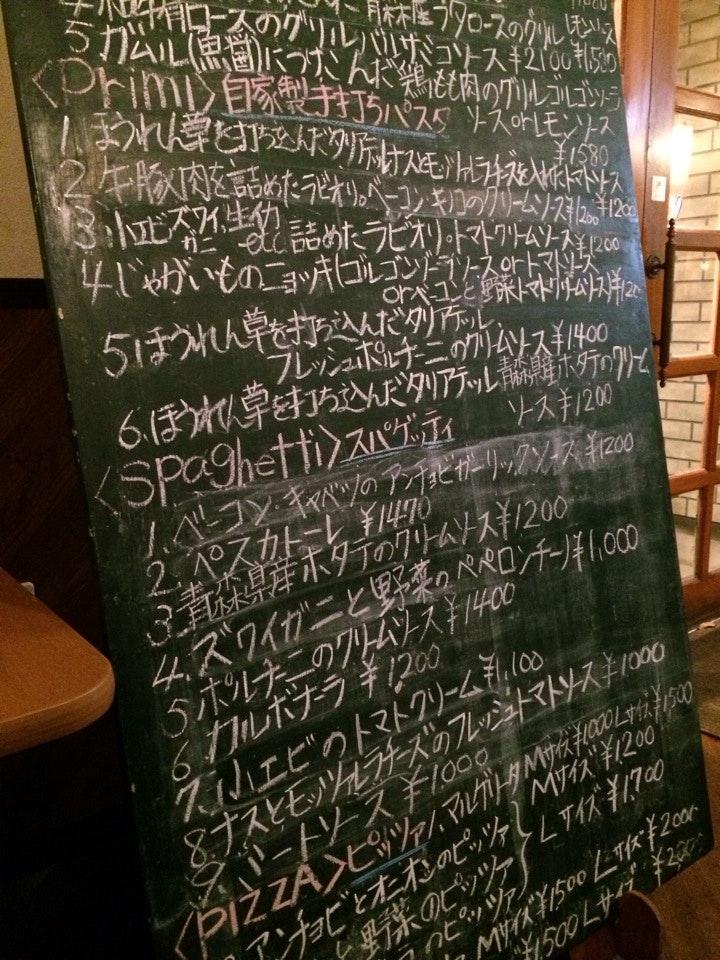 ロースのグリル
産ラタロースのグリル レモンソース
5 ガムル(魚醤)につけこんだ鶏もも肉のグリルゴルゴンゾーラ
バルサミコソース ¥2100 ¥1,580
ソース orレモンソース
¥1580
<Primi> 自家製手打ちパスタ
1. ほうれん草を打ち込んだタリアテッレナスとモッツァレラチーズを入れたトマトソース
¥1200
2. 牛、豚肉を詰めたラビオリ。ベーコン・キノコのクリームソース ¥1200
3. 小エビ、ズワイガニ、生イカ etc 詰めたラビオリ。トマトクリームソース ¥1200
4. じゃがいものニョッキ(ゴルゴンゾーラソース orトマトソース
orベーコンと野菜トマトクリームソース)
5. ほうれん草を打ち込んだタリアテッレ
フレッシュポルチーニのクリームソース ¥1400
6. ほうれん草を打ち込んだタリアテッレ 青森県産ホタテのクリーム
ソース ¥1200
<Spaghetti> スパゲッティ
1. ベーコン・キャベツのアンチョビガーリックソース ¥1200
2. ペスカトーレ ¥1470
3. 青森県産ホタテのクリームソース ¥1200
4. ズワイガニと野菜のペペロンチーノ ¥1,000
5. ポルチーニのクリームソース ¥1400
6. カルボナーラ ¥1200
7. 小エビのトマトクリーム ¥1,100
8. ナスとモッツァレラチーズのフレッシュトマトソース ¥1000
9. ミートソース ¥1,000
<PIZZA> ピッツァ
マルゲリータ Mサイズ ¥1000 Lサイズ ¥1500
アンチョビとオニオンのピッツァ Mサイズ ¥1200
と野菜のピッツァ Lサイズ ¥1,700
のピッツァ Mサイズ ¥1500 Lサイズ ¥2000
¥1500 Lサイズ